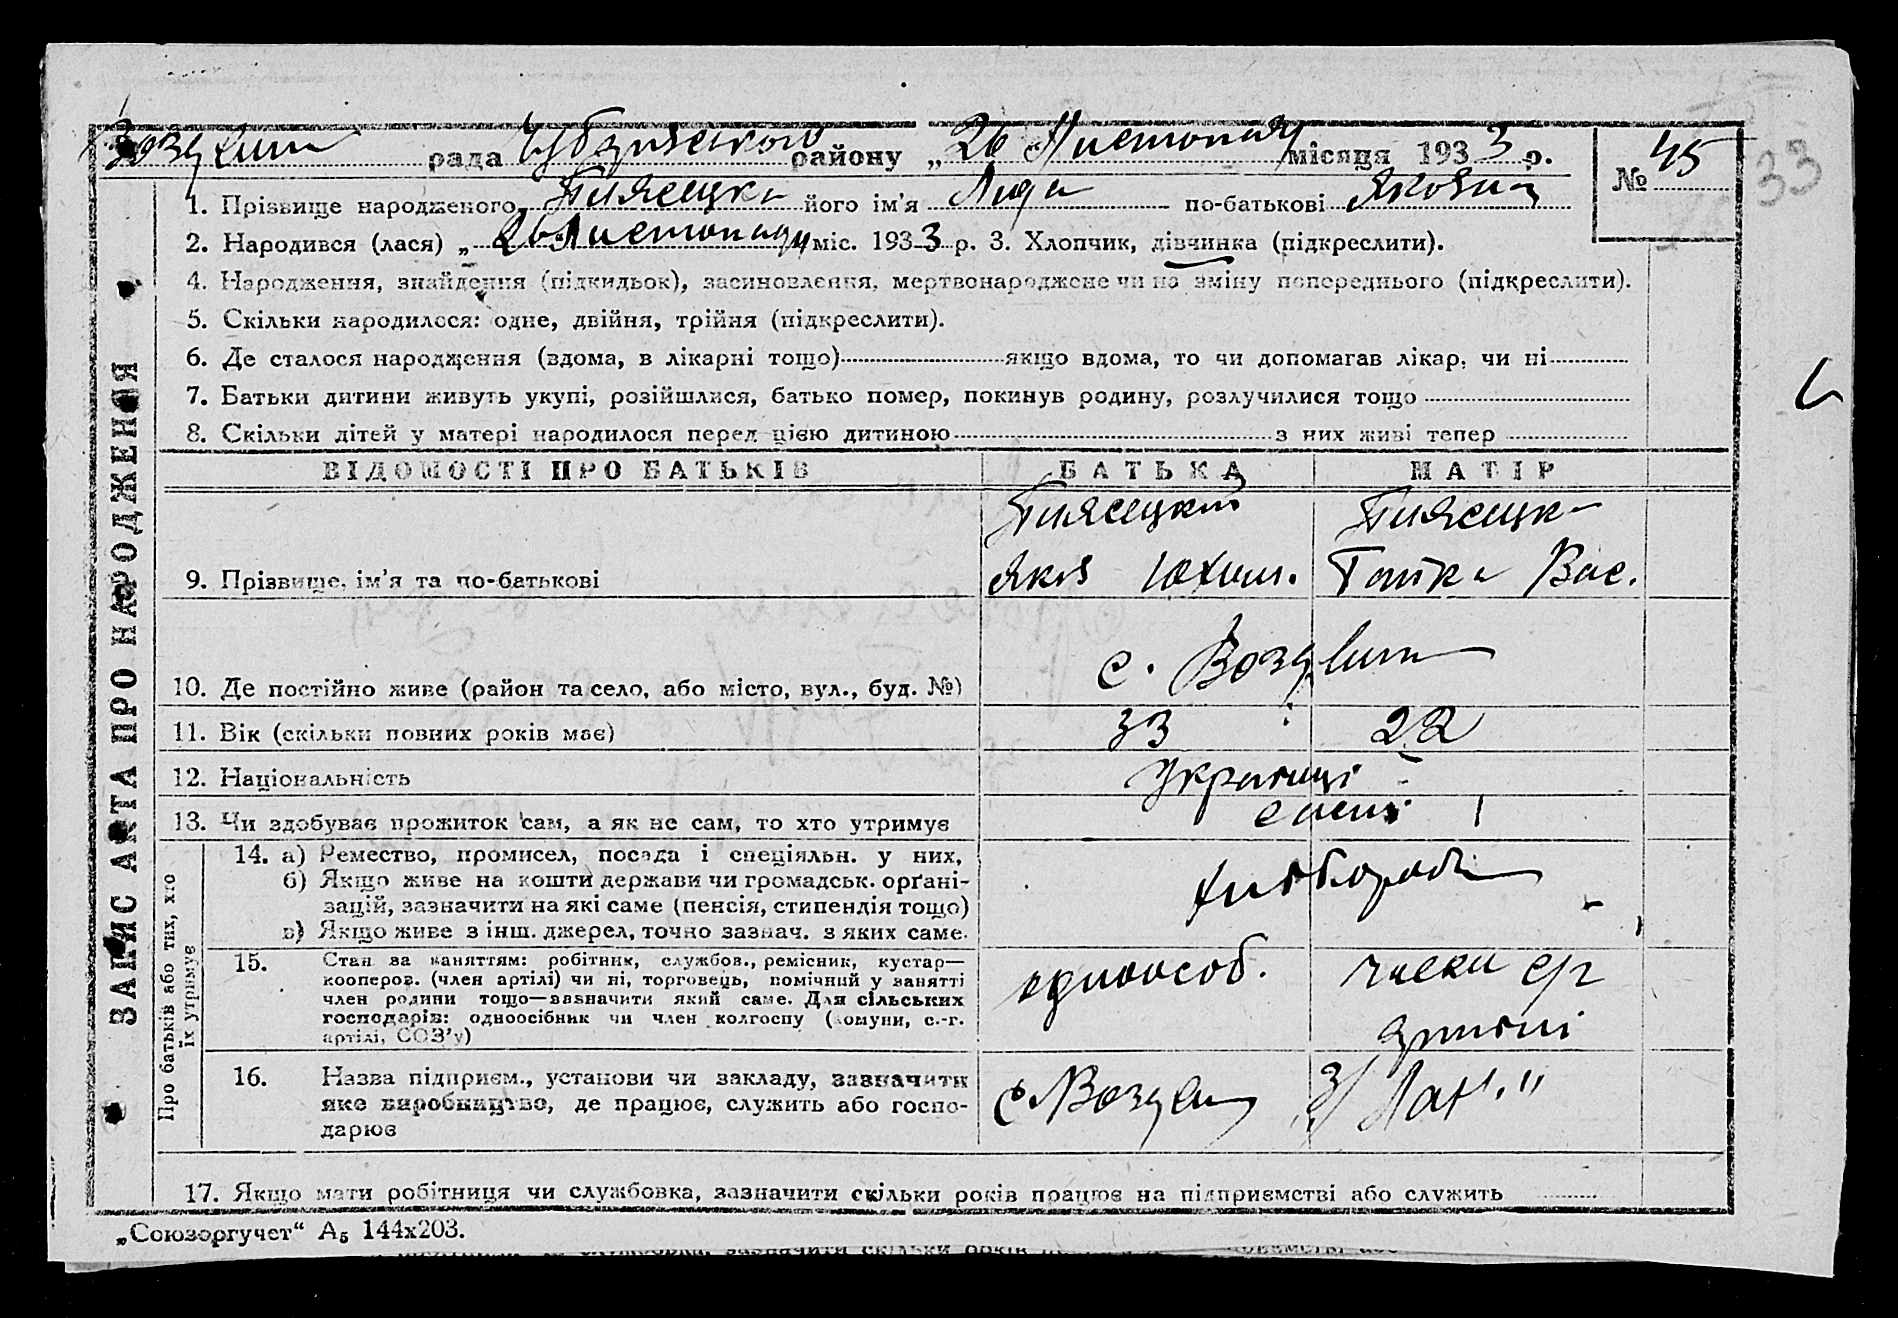 рада Чубарівського району „ 26 " Листопада місяця 1933 р. № 45
33
1. Прізвище народженого Пиясецка його ім’я Лида по-батькові Яковна
2. Народився (лася) „ 26 " Листопаду міс. 1933 р. 3. Хлопчик, дівчинка (підкреслити).
4. Народження, знайдення (підкидьок), засиновлення, мертвонароджене чи на зміну попереднього (підкреслити).
5. Скільки народилося: одне, двійня, трійня (підкреслити).
6. Де сталося народження (вдома, в лікарні тощо) якщо вдома, то чи допомагав лікар, чи ні
7. Батьки дитини живуть укупі, розійшлися, батько помер, покинув родину, розлучилися тощо
8. Скільки дітей у матері народилося перед цією дитиною з них живі тепер
ВІДОМОСТІ ПРО БАТЬКІВ БАТЬКА МАТІР
Пиясецкий Пиясецка
9. Прізвище, ім’я та по-батькові Яків Юхим. Вас.
10. Де постійно живе (район та село, або місто, вул., буд. №) с.
11. Вік (скільки повних років має) 33 22
12. Національність Українці
13. Чи здобуває прожиток сам, а як не сам, то хто утримує самі
14. а) Ремество, промисел, посада і спеціяльн. у них,
б) Якщо живе на кошти держави чи громадськ. орґані-
зацій, зазначити на які саме (пенсія, стипендія тощо)
в) Якщо живе з інш. джерел, точно зазнач. з яких саме.
хлібороби
15. Стан за заняттям: робітник, службов., ремісник, кустар—
кооперов. (член артілі) чи ні, торговець, помічний у занятті
член родини тощо—зазначити який саме. Для сільських
господарів: одноосібник чи член колгоспу (комуни, с.-г.
артілі, СОЗ’у)
одноособ. члени с/г
артілі
16. Назва підприєм., установи чи закладу, зазначити
яке виробництво, де працює, служить або госпо-
дарює
17. Якщо мати робітниця чи службовка, зазначити скільки років працює на підприємстві або служить
„Союзоргучет“ А₅ 144х203.
ЗАПИС АКТА ПРО НАРОДЖЕННЯ
Про батьків або тих, хто
їх утримує